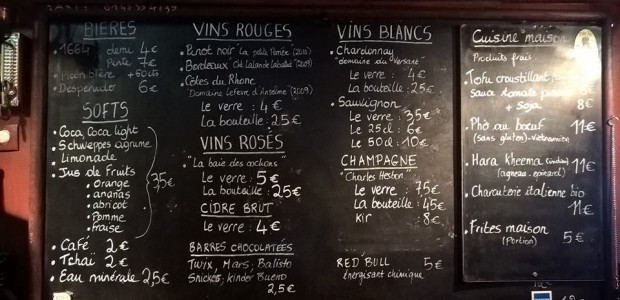 BIERES
1664 demi 4€
Pinte 7€
Picon bière + 50cts
Desperado 6€
SOFTS
Coca, Coca light
Schweppes agrume
Limonade
Jus de Fruits
Orange
ananas
abricot
Pomme
fraise
3,5€
Café 2€
Tchaï 2€
Eau minérale 2,5€
VINS ROUGES
Pinot noir "La petite Perrière" (2010)
Bordeaux "Ch Lalande Labatut" (2009)
Côtes du Rhone
"Domaine Lefevre d'Anselme" (2009)
Le verre : 4€
La bouteille : 25€
VINS ROSÉS
"La baie des cochons"
Le verre : 5€
La bouteille : 25€
CIDRE BRUT
Le verre : 4€
BARRES CHOCOLATÉES
Twix, Mars, Balisto
Snickers, kinder Bueno
2,5€
VINS BLANCS
Chardonnay
"domaine du Versant"
Le verre : 4€
La bouteille : 25€
Sauvignon
Le verre : 3,5€
Le 25cl : 6€
Le 50cl : 10€
CHAMPAGNE
"Charles Heston"
Le verre : 7,5€
La bouteille : 45€
Kir : 8€
RED BULL 5€
Energisant chimique
Cuisine maison
Produits frais
Tofu croustillant
sauce tomate
+ Soja 8€
Phö au bœuf 11€
(sans gluten) - vietnamien
Hara Kheema (indien) 11€
(agneau - épinard)
Charcuterie italienne bio
11€
Frites maison
(Portion) 5€